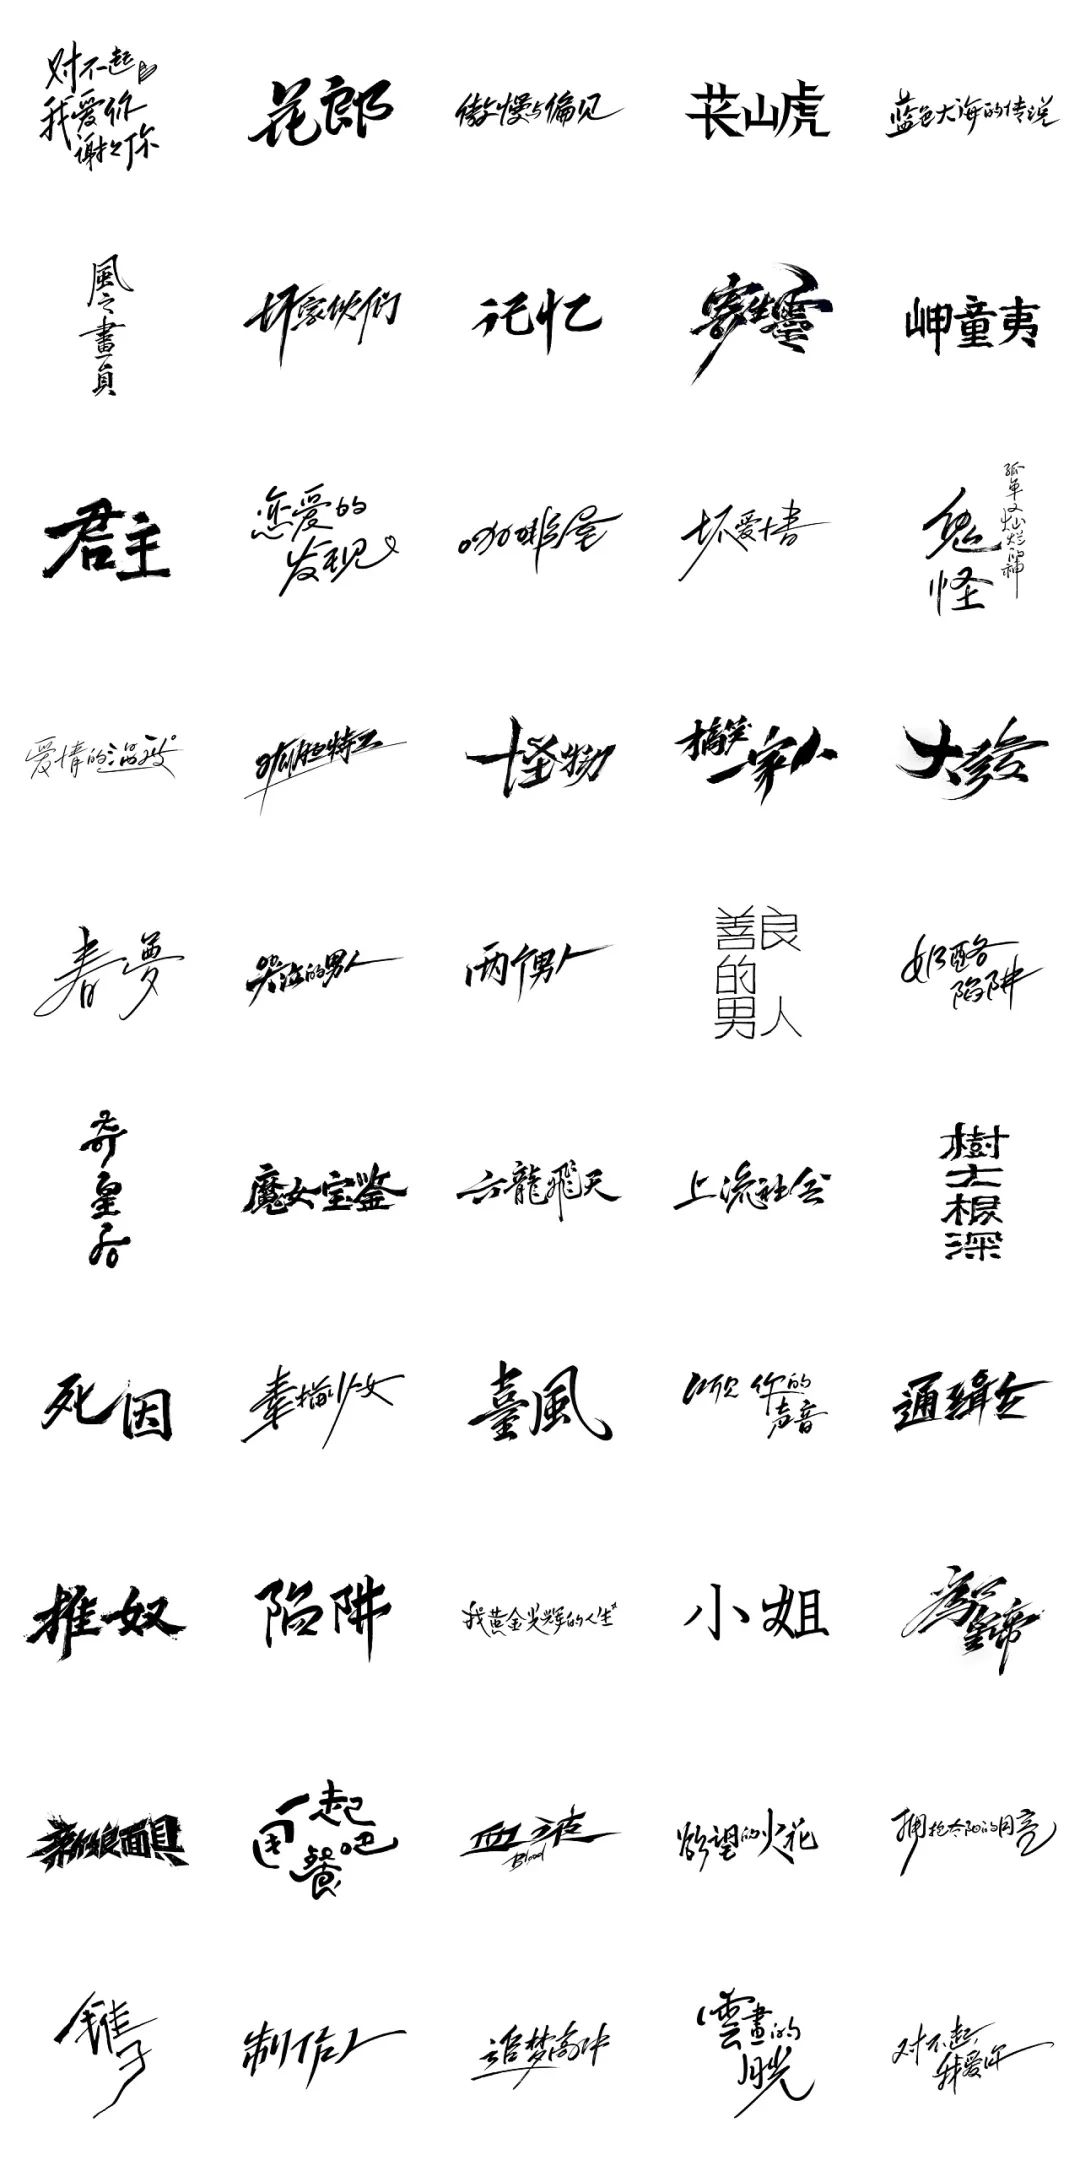 对不起
我爱你
谢谢你
花郎
傲慢与偏见
苌山虎
蓝色大海的传说
風之畫員
坏家伙们
记忆
寄生靈
岬童夷
君主
恋爱的
发现
咖啡屋
坏爱情
鬼怪
孤单又灿烂的神
爱情的温度
哨所特工
怪物
搞笑
一家人
大發
春夢
哭泣的男人
两个男人
善良
的
男人
奶酪
陷阱
奇皇后
魔女宝鉴
六龍飛天
上流社会
樹大根深
死因
素描少女
臺風
听见你的
声音
通缉令
推奴
陷阱
我黄金光辉的人生
小姐
為皇帝
新娘面具
一起
用餐吧
血疫
Blood
欲望的火花
拥抱太阳的月亮
锥子
制作人
追梦高中
雲畫的
月光
对不起,
我爱你